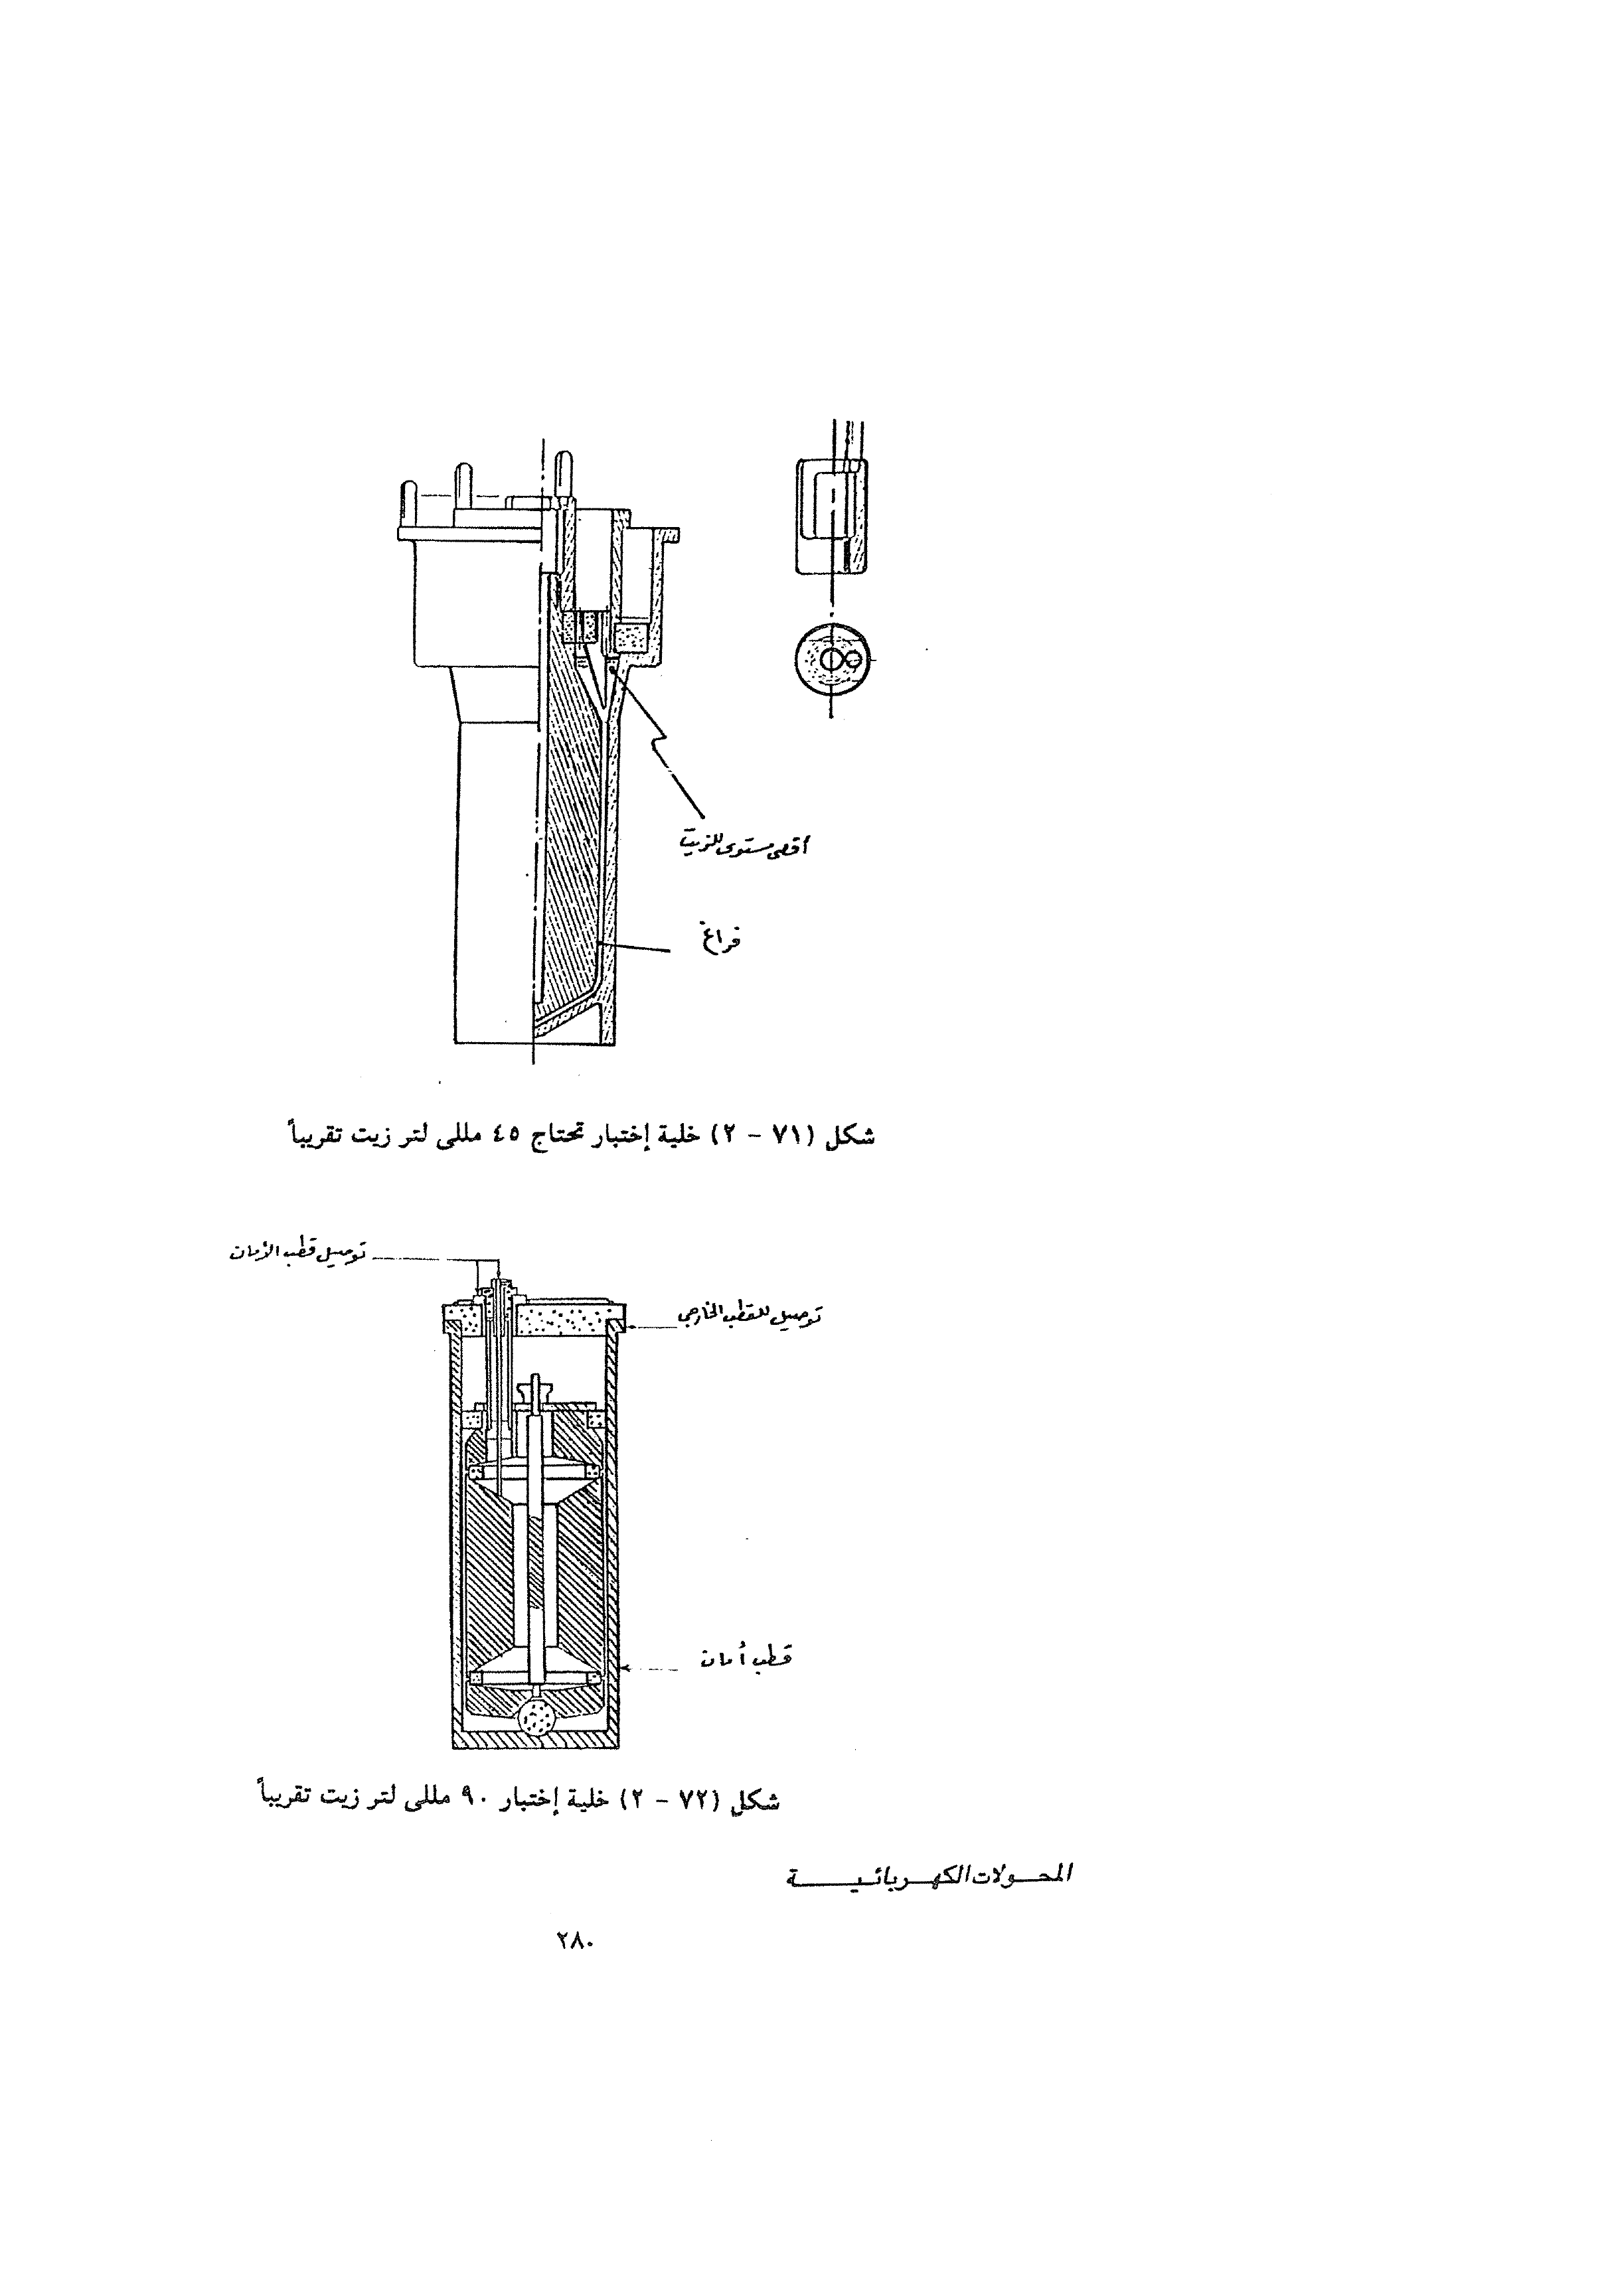 أقصى مستوى للزيت
فراغ
شكل (٧١ - ٢) خلية إختبار تحتاج ٤٥ مللى لتر زيت تقريباً
توصيل قطب الأمان
توصيل للقطب الخارجى
قطب أمان
شكل (٧٢ - ٢) خلية إختبار ٩٠ مللى لتر زيت تقريباً
المحـولات الكهـربائيـة
٢٨٠